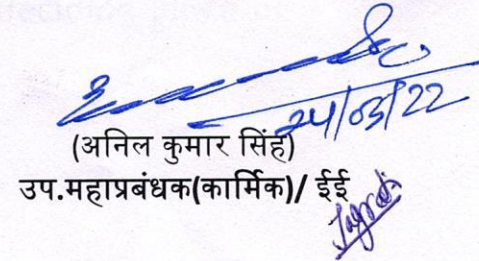 24/03/22
(अनिल कुमार सिंह)
उप.महाप्रबंधक(कार्मिक)/ ईई
Jagrati